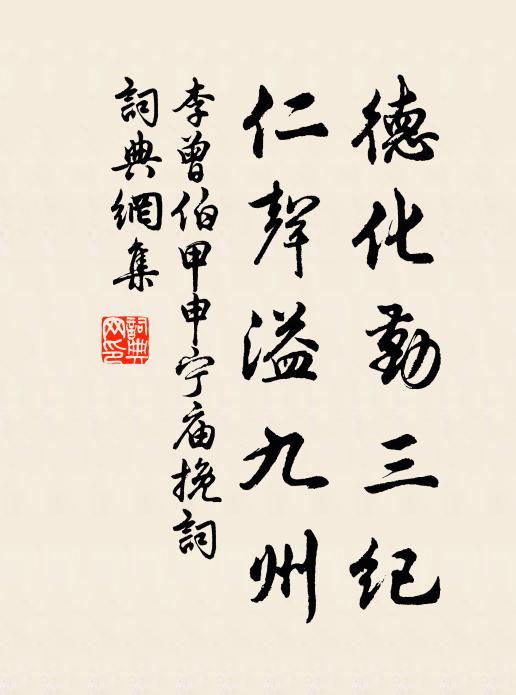 德化勤三纪
仁聲溢九州
李曾伯甲申宁庙挽詞
詞典網集
詞典网印